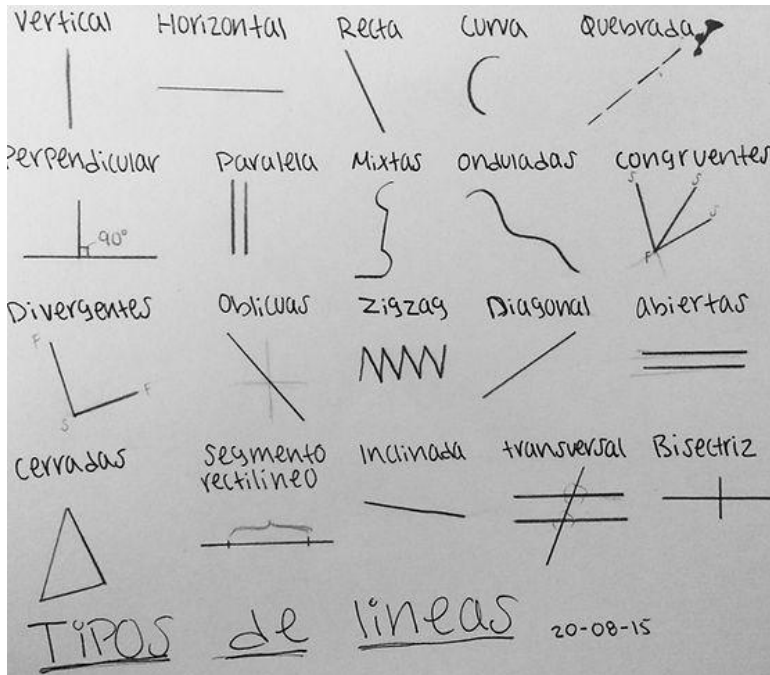 Vertical Horizontal Recta Curva Quebrada
Perpendicular Paralela Mixtas onduladas congruentes
90°
S S S
F
Divergentes Oblicuas Zigzag Diagonal abiertas
F F
S
cerradas segmento rectilineo Inclinada transversal Bisectriz
TIPOS de lineas 20-08-15